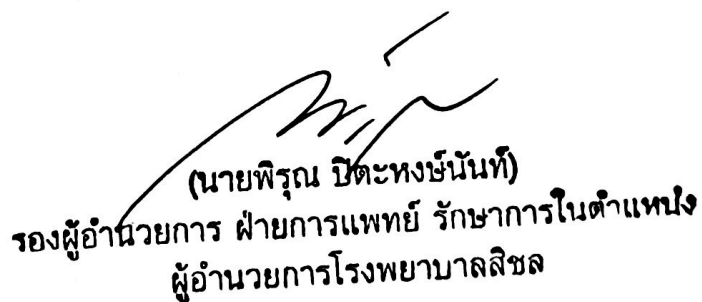 (นายพิรุณ ปิตะหงษ์นันท์)
รองผู้อำนวยการ ฝ่ายการแพทย์ รักษาการในตำแหน่ง
ผู้อำนวยการโรงพยาบาลสิชล